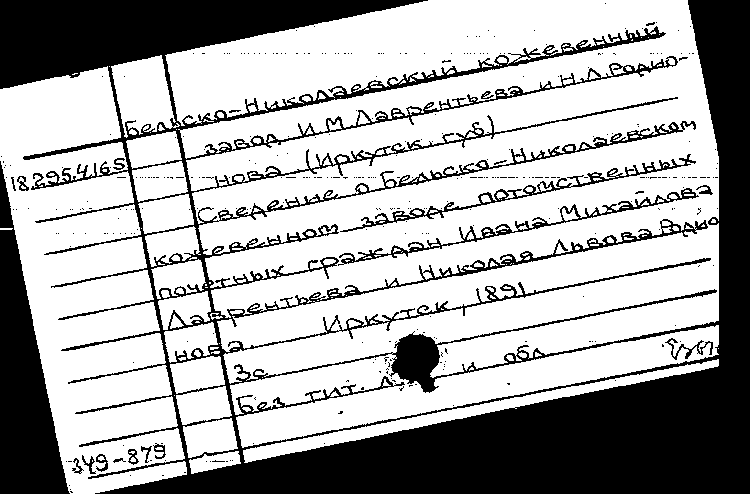 Бельско-Николаевский кожевенный
завод И.М.Лаврентьева и Н.Л.Родио-
нова (Иркутск. губ)
18.295.4.165
Сведение о Бельско-Николаевском
кожевенном заводе потомственных
почетных граждан Ивана Михайлова
Лаврентьева и Николая Львова Родио
нова. Иркутск, 1891.
3с.
Без тит. л. и обл
349-879